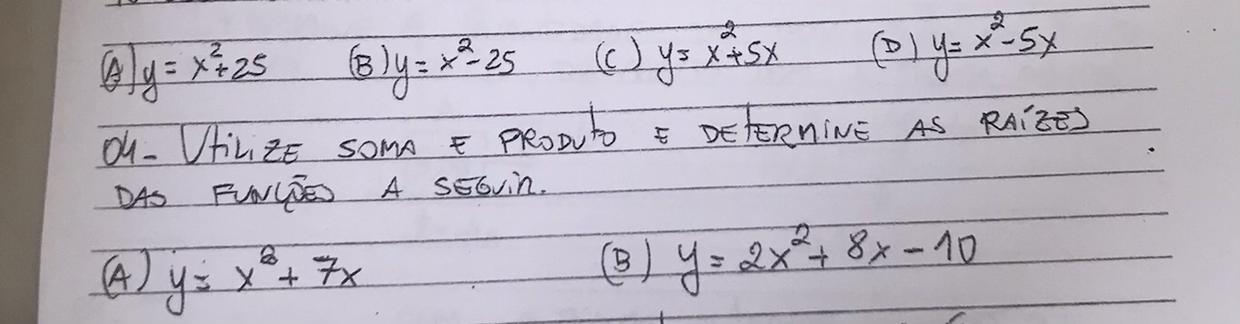 (A) y = x² + 25 (B) y = x² - 25 (C) y = x² + 5x (D) y = x² - 5x
04- Utilize soma e produto e determine as raízes
das funções a seguir.
(A) y = x² + 7x (B) y = 2x² + 8x - 10